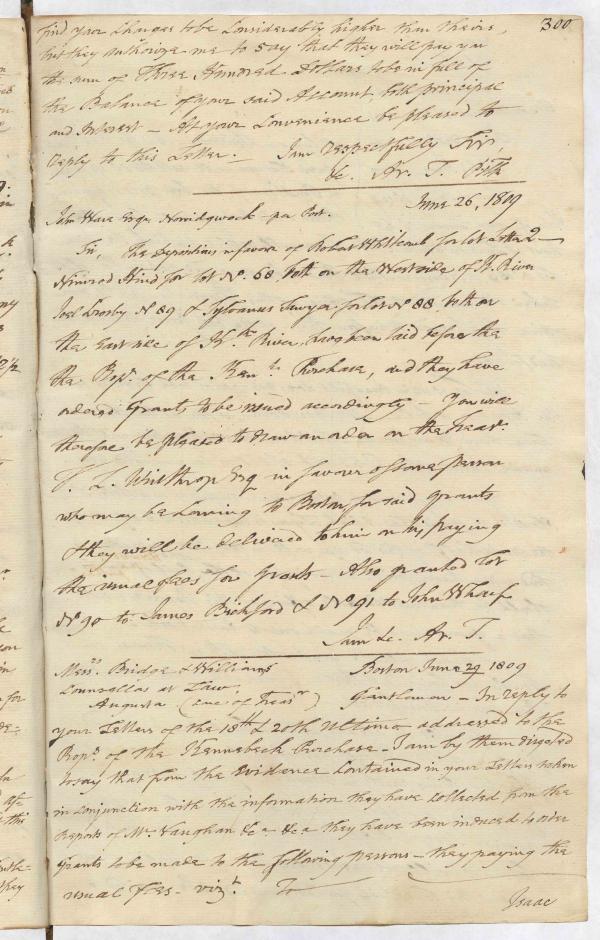 300
find your charges to be Considerably higher than theirs,
but they authorize me to say that they will pay you
the sum of Three Hundred Dollars to be in full of
the Balance of your said Account, both principal
and Interest – At your Convenience be pleased to
reply to this Letter. – I am respectfully Sir,
&c. Ar. T. Pr Tt
John Ware Esqr Norridgwock – per Post. June 26, 1809
Sir, The Depositions in favor of Robert Whitcomb for lot Letter
Nimrod Hind for lot No. 68, both on the West side of Kc River
Joel Crosby N 89 & Sylvanus Sawyer for lot N 88 both on
the East side of Kc River, have been laid before the
the Propr. of the Kenc. Purchase, and they have
ordered Grants to be issued accordingly – You will
therefore be pleased to draw an order on the Treasr.
T. L. Winthrop Esq in favour of some person
who may be Coming to Boston, for said grants
& they will be delivered to him on his paying
the usual fees for Grants – Also granted Lot
No 90 to James Bickford & No 91 to John Wharf
I am &c. Ar. T.
Messrs. Bridge & Williams Boston June 29 1809
Counsellas at Law,
Augusta (care of Treasr) Gentlemen – In reply to
your Letters of the 18th & 20th Ultimo addressed to the
Propr. of the Kennebeck Purchase – I am by them directed
to say that from the Evidence Contained in your Letters taken
in Conjunction with the information they have collected from the
Reports of Mr. Vaughan &c a &c a they have been induced to order
Grants to be made to the following persons – they paying the
usual Fees – vizt. To
Isaac